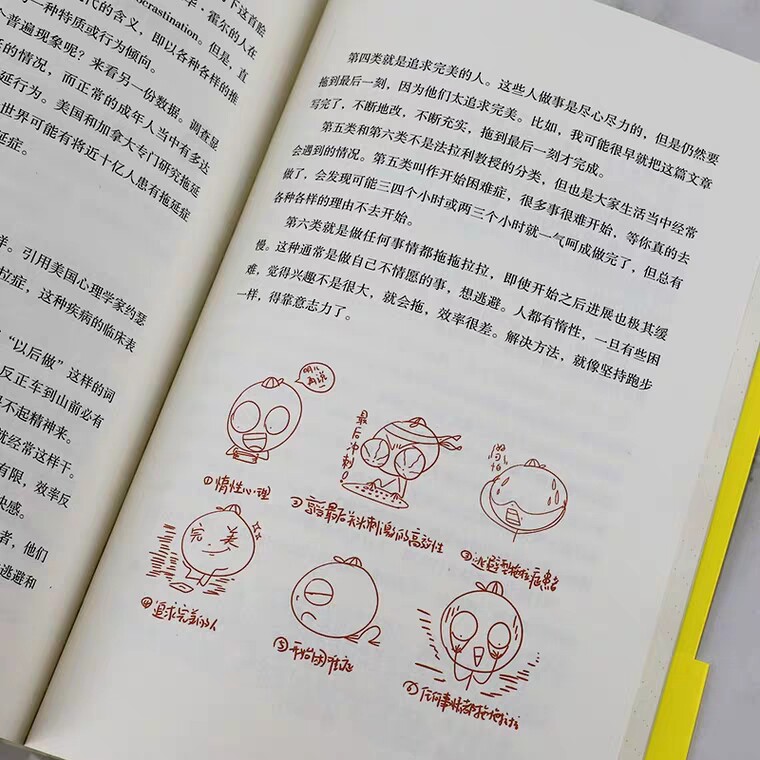 下这首脍
代的含义,
·霍尔的人在
crastination. 但是,直
一种特质或行为倾向。
普遍现象呢?来看另一份数据。调查显
的情况,而正常的成年人当中有多达
延行为。美国和加拿大专门研究拖延
世界可能有将近十亿人患有拖延症
延症。
样。引用美国心理学家约瑟
拉症,这种疾病的临床表
“以后做”这样的词
反正车到山前必有
不起精神来。
就经常这样干。
有限,效率反
快感。
者,他们
逃避和
第四类就是追求完美的人。这些人做事是尽心尽力的,但是仍然要
拖到最后一刻,因为他们太追求完美。比如,我可能很早就把这篇文章
写完了,不断地改,不断充实,拖到最后一刻才完成。
第五类和第六类不是法拉利教授的分类,但也是大家生活当中经常
会遇到的情况。第五类叫作开始困难症,很多事很难开始,等你真的去
做了,会发现可能三四个小时或两三个小时就一气呵成做完了,但总有
各种各样的理由不去开始。
第六类就是做任何事情都拖拖拉拉,即使开始之后进展也极其缓
慢。这种通常是做自己不情愿的事,想逃避。人都有惰性,一旦有些困
难,觉得兴趣不是很大,就会拖,效率很差。解决方法,就像坚持跑步
一样,得靠意志力了。
明儿
再说
①惰性心理
最后冲刺
②享受最后关头刺激的高效性
好可怕
③逃避型拖拉病患者
完美
④追求完美的人
⑤开始困难症
⑥任何事情都拖拖拉拉